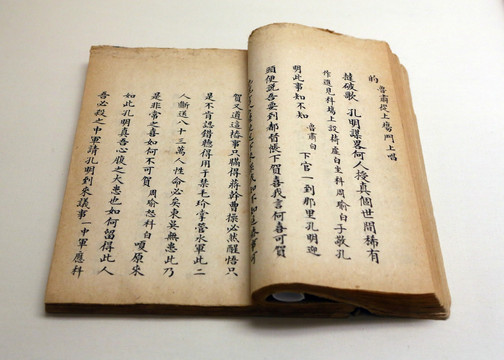 的 魯肅從上舊門上唱
撻破歌 孔明謀畧何人授真個世間稀有
作進見科場上設椅虛白坐科周瑜白子敬孔
明此事知不知 魯肅白 下官一到那里孔明迎
頭便説吾要到都督帳下賀喜我言何喜可賀
賀又道這樁事只瞞得蔣幹曹操必然醒悟只
是不肯認錯聽得用于禁毛玠掌管水軍此二
人斷送八十三萬人性命必矣東吳無患此乃
是非常之喜如何不可賀 周瑜怒科白 嗄原來
如此孔明真吾心腹之大患也如何留得此人
吾必殺之中軍請孔明到來議事 中軍應科